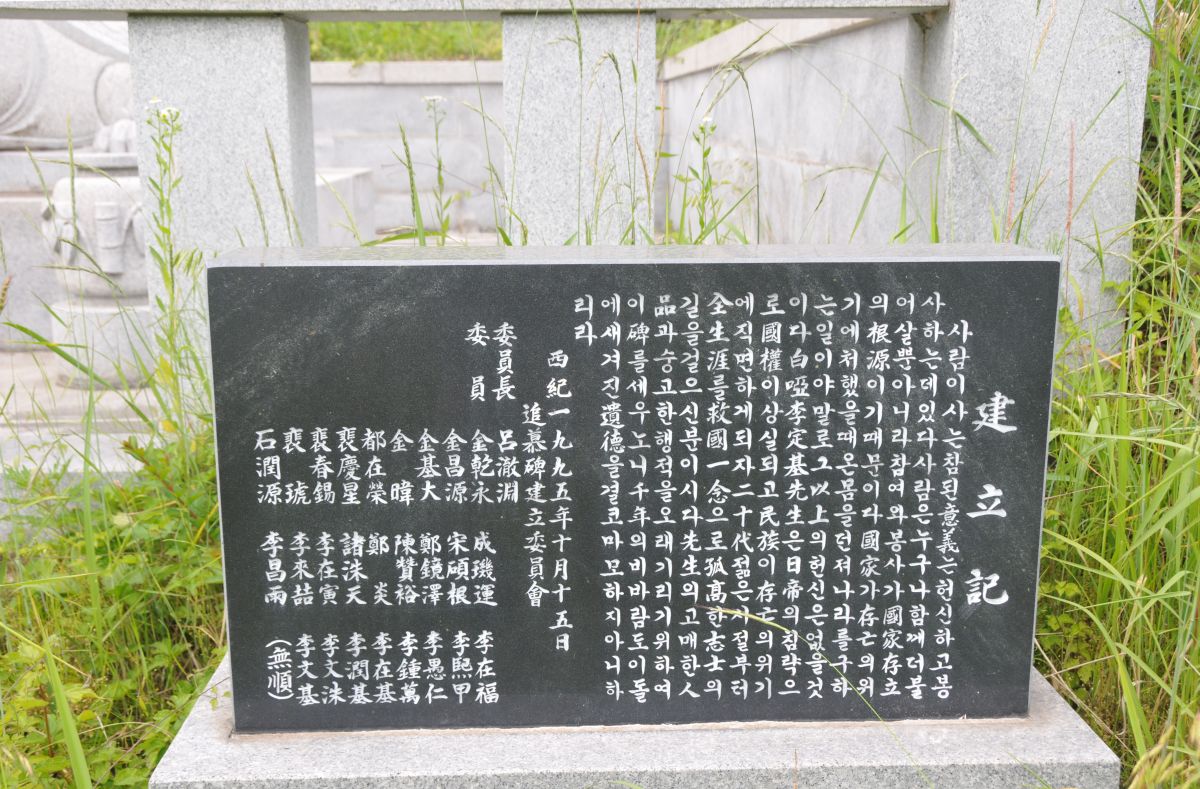 建立記
사람이 사는 참된 意義는 헌신하고 봉
사하는데 있다 사람은 누구나 함께 더불
어 살뿐 아니라 참여와 봉사가 國家存立
의 根源이기 때문이다 國家가 存亡의 위
기에 처했을때 온몸을 던져 나라를 구하
는 일이야 말로 그 以上의 헌신은 없을 것
이다 白啞 李定基先生은 日帝의 침략으
로 國權이 상실되고 民族이 存亡의 위기
에 직면하게 되자 二十代 젊은 시절부터
全生涯를 救國一念으로 孤高한 志士의
길을 걸으신 분이시다 先生의 고매한 人
品과 숭고한 행적을 오래 기리기 위하여
이 碑를 세우노니 千年의 비바람도 이 돌
에 새겨진 遺德을 결코 마모하지 아니하
리라
西紀一九九五年十月十五日
追慕碑建立委員會
委員長 呂澈淵
委員 金乾永 成璣運 李在福
金昌源 宋碩根 李熙甲
金基大 鄭鏡澤 李愚仁
金暐 陳贊裕 李鍾萬
都在榮 鄭炎 李在基
裵慶星 諸洙天 李潤基
裵春錫 李在寅 李文洙
裵琥 李來喆 李文基
石潤源 李昌雨 (無順)